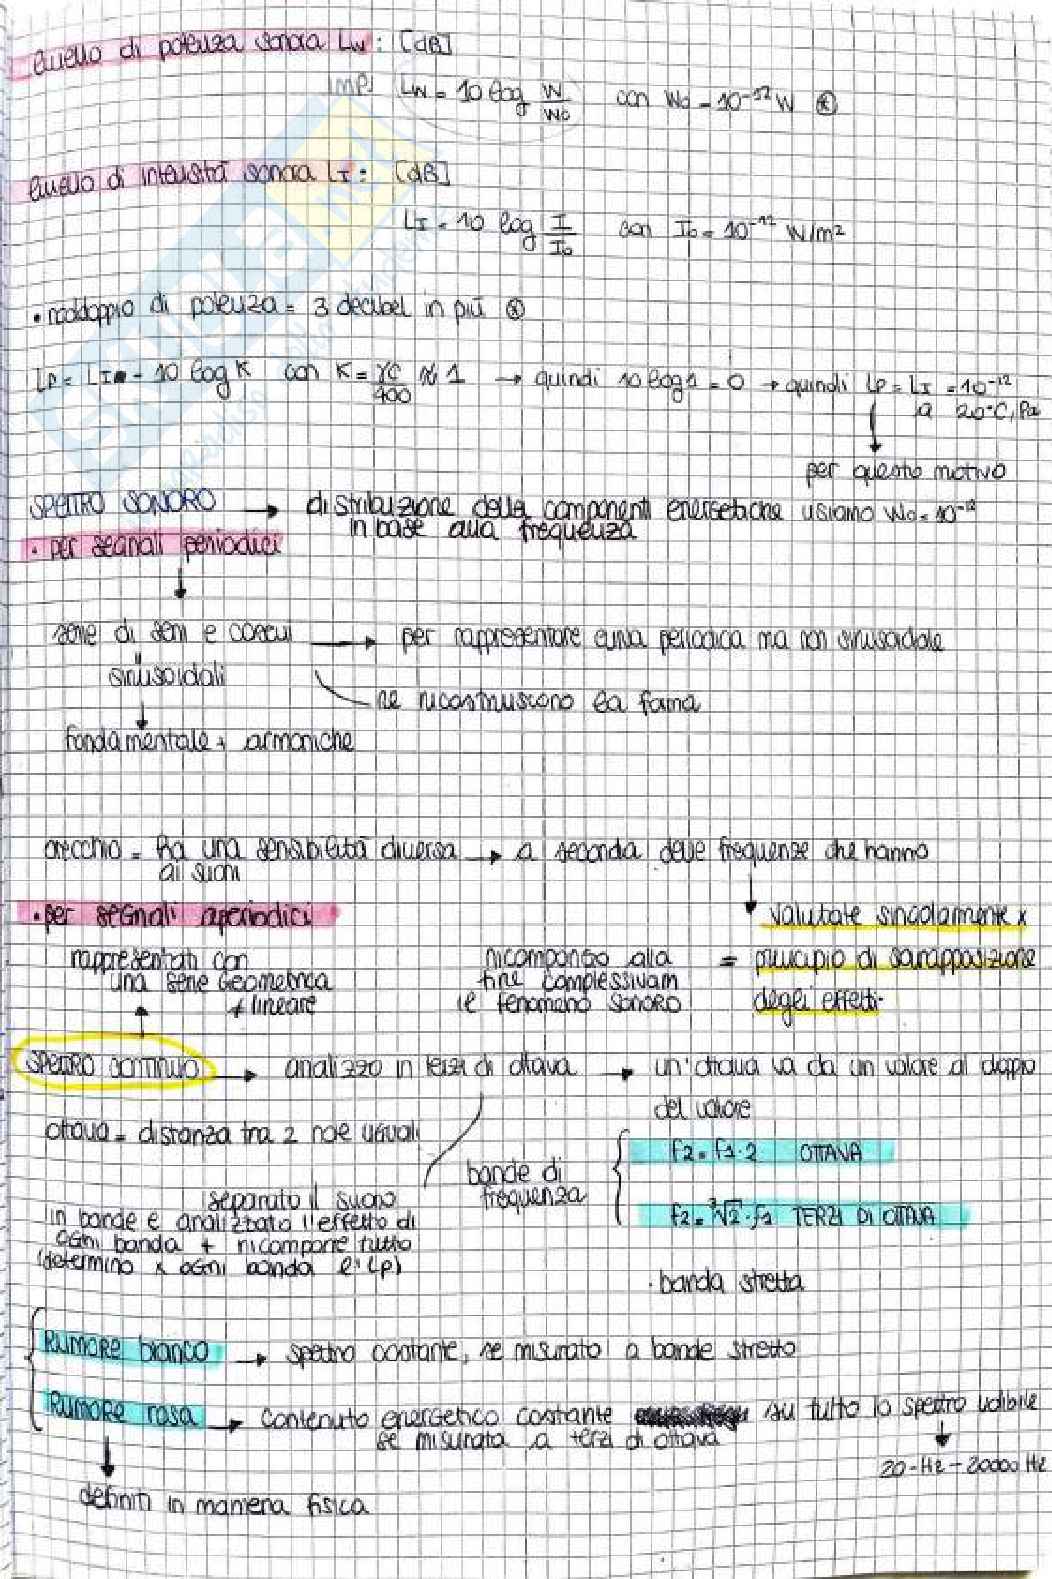 livello di potenza sonora Lw : [dB]
IMP! Lw = 10 log W/W0 con W0 = 10⁻¹² W ⊛
livello di intensità sonora LI : [dB]
LI = 10 log I/I0 con I0 = 10⁻¹² W/m²
• raddoppio di potenza = 3 decibel in più ⊛
Lp = LI - 10 log K con K = γc/400 ≈ 1 → quindi 10 log 1 = 0 → quindi Lp = LI = 10⁻¹²
a 20°C, Pa
per questo motivo
usiamo W0 = 10⁻¹²
SPETTRO SONORO → distribuzione delle componenti energetiche
in base alla frequenza
• per segnali periodici
serie di seni e coseni → per rappresentare curva periodica ma non sinusoidale
sinusoidali
ne ricostruiscono la forma
fondamentale + armoniche
orecchio = ha una sensibilità diversa → a seconda delle frequenze che hanno
ai suoni
• per segnali aperiodici
valutate singolarmente x
rappresentati con
una serie geometrica
≠ lineare
ricompongo alla
fine complessivam
il fenomeno sonoro
= principio di sovrapposizione
degli effetti
SPETTRO CONTINUO → analizzo in terzi di ottava → un'ottava va da un valore al doppio
del valore
ottava = distanza tra 2 note uguali
bande di
frequenza
f2 = f1 · 2 OTTAVA
f2 = ³√2 · f1 TERZI DI OTTAVA
separato il suono
in bande e analizzato l'effetto di
ogni banda + ricomporre tutto
(determino x ogni banda il Lp)
• banda stretta
Rumore bianco → spettro costante, se misurato a bande strette
Rumore rosa → contenuto energetico costante su tutto lo spettro udibile
se misurata a terzi di ottava
20 Hz - 20000 Hz
definiti in maniera fisica